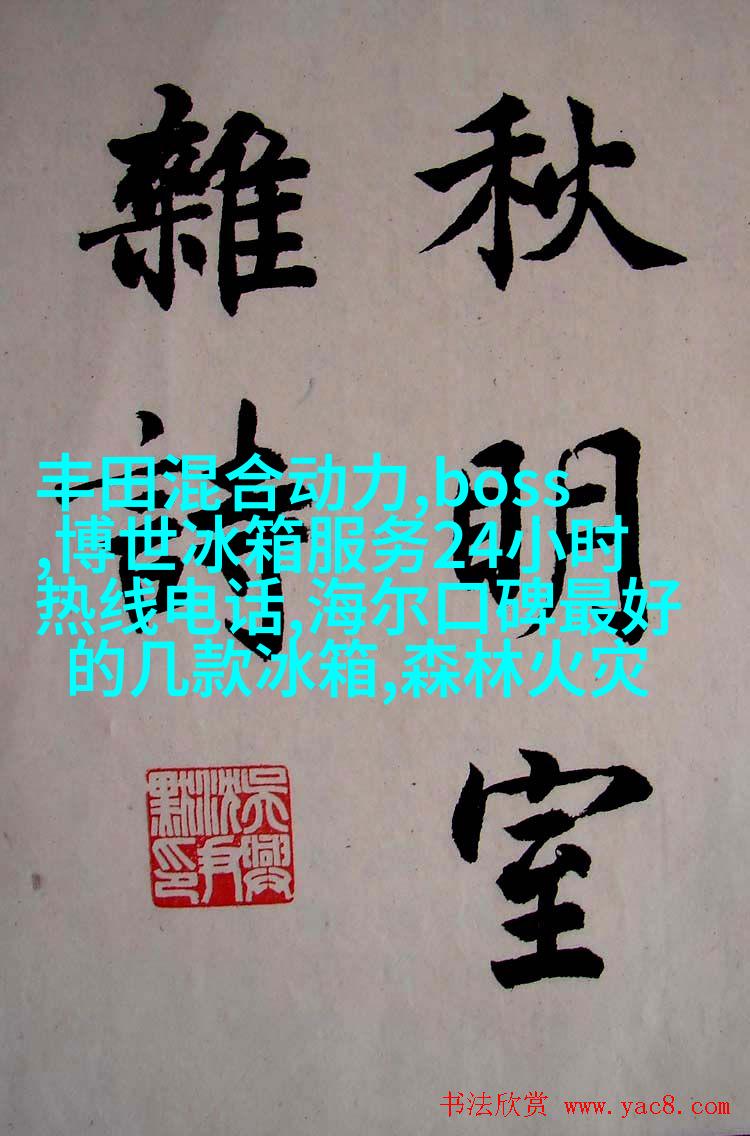 秋明室
雜詩
吳興
沈尹
默印
丰田混合动力,boss
,博世冰箱服务24小时
热线电话,海尔口碑最好
的几款冰箱,森林火灾
书法欣赏 www.yac8.com